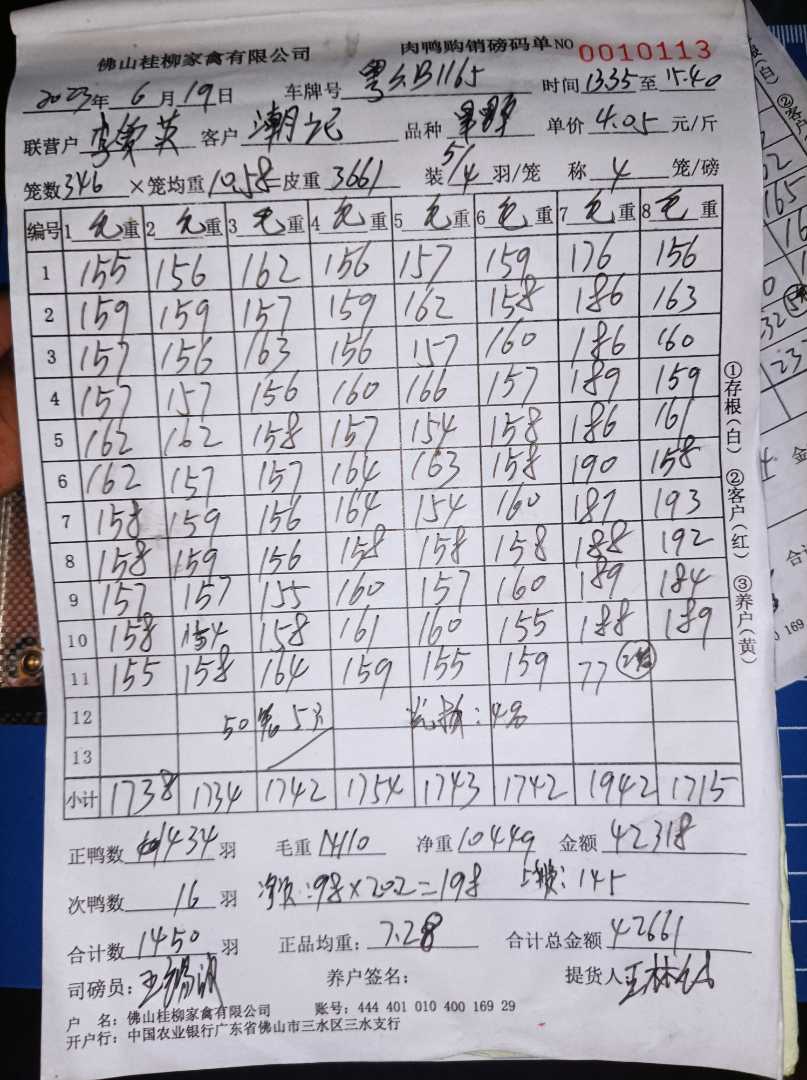 佛山桂柳家禽有限公司 肉鸭购销磅码单 NO 0010113
2023年 6月 19日 车牌号 粤 B1165 时间 13.35 至 15.40
联营户 客户 潮记 品种 单价 4.05 元/斤
笼数 346 ×笼均重 10.58 = 皮重 3661 装 5/4 羽/笼 称 4 笼/磅
编号 1 毛重 2 毛重 3 毛重 4 毛重 5 毛重 6 毛重 7 毛重 8 毛重
1 155 156 162 156 157 159 176 156
2 159 159 157 159 162 158 186 163
3 157 156 163 156 157 160 186 160
4 157 157 156 160 166 157 189 159
5 162 162 158 157 154 158 186 161
6 162 157 157 164 163 158 190 158
7 158 159 156 164 154 160 187 193
8 158 159 156 158 158 158 188 192
9 157 157 155 160 157 160 189 184
10 158 154 158 161 160 155 188 189
11 155 158 164 159 155 159 77
12 50笼 5只 : 4名
13
小计 1738 1734 1742 1754 1743 1742 1942 1715
正鸭数 1434 羽 毛重 14110 净重 10449 金额 42318
次鸭数 16 羽 :98×2.02=198 : 145
合计数 1450 羽 正品均重: 7.28 合计总金额 42661
司磅员: 王 养户签名: 提货人 王林
户 名: 佛山桂柳家禽有限公司 账号: 444 401 010 400 169 29
开户行: 中国农业银行广东省佛山市三水区三水支行
①存根(白) ②客户(红) ③养户(黄)